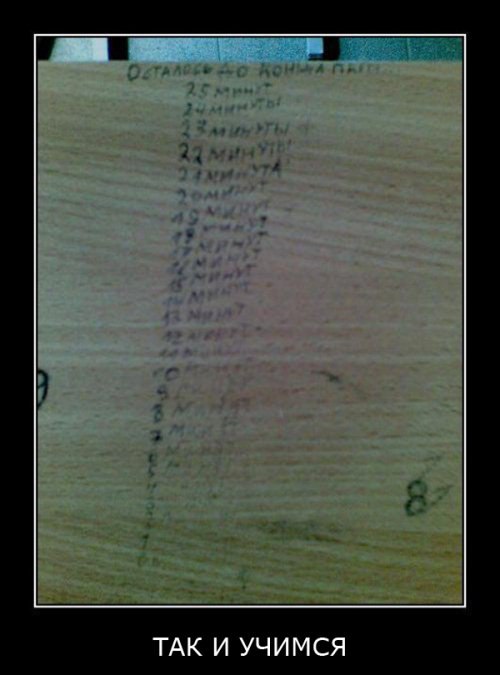 ОСТАЛОСЬ ДО КОНЦА ПАРЫ...
25 МИНУТ
24 МИНУТЫ
23 МИНУТЫ
22 МИНУТЫ
21 МИНУТА
20 МИНУТ
19 МИНУТ
18 МИНУТ
17 МИНУТ
16 МИНУТ
15 МИНУТ
14 МИНУТ
13 МИНУТ
12 МИНУТ
11 МИНУТ
10 МИНУТ
9
8 МИНУТ
7 МИНУТ
6 МИНУТ
8
ТАК И УЧИМСЯ